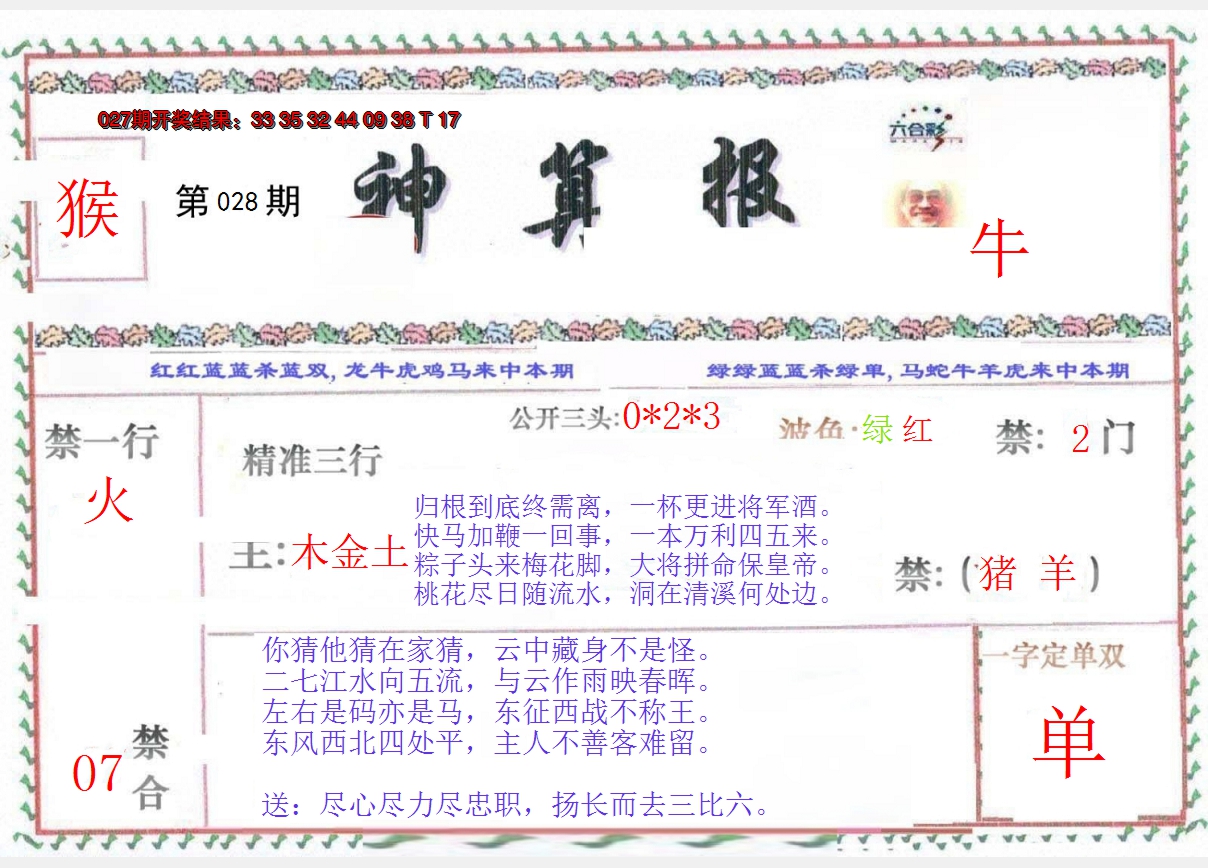 027期开奖结果：33 35 32 44 09 38 T 17
六合彩
猴
第 028 期
神算报
牛
红红蓝蓝杀蓝双, 龙牛虎鸡马来中本期
绿绿蓝蓝杀绿单, 马蛇牛羊虎来中本期
公开三头:0*2*3
波色·绿 红
禁: 2 门
禁一行
火
精准三行
主:木金土
归根到底终需离，一杯更进将军酒。
快马加鞭一回事，一本万利四五来。
粽子头来梅花脚，大将拼命保皇帝。
桃花尽日随流水，洞在清溪何处边。
禁:(猪 羊)
你猜他猜在家猜，云中藏身不是怪。
二七江水向五流，与云作雨映春晖。
左右是码亦是马，东征西战不称王。
东风西北四处平，主人不善客难留。
送：尽心尽力尽忠职，扬长而去三比六。
07
禁合
一字定单双
单